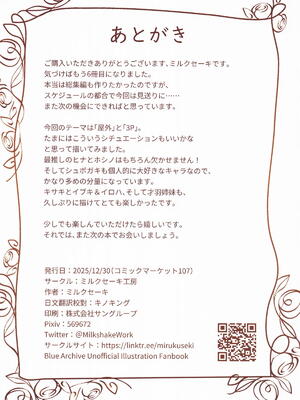 あとがき
ご購入いただきありがとうございます、ミルクセーキです。
気づけばもう6冊目になりました。
本当は総集編も作りたかったのですが、
スケジュールの都合で今回は見送りに……
また次の機会にできればと思っています。
今回のテーマは「屋外」と「3P」。
たまにはこういうシチュエーションもいいかな
と思って描いてみました。
最推しのヒナとホシノはもちろん欠かせません！
そしてシュポガキも個人的に大好きなキャラなので、
かなり多めの分量になっています。
キサキとイブキ＆イロハ、そして才羽姉妹も、
久しぶりに描けてとても楽しかったです。
少しでも楽しんでいただけたら嬉しいです。
それでは、また次の本でお会いしましょう。
発行日：2025/12/30（コミックマーケット107）
サークル：ミルクセーキ工房
作者：ミルクセーキ
日文翻訳校對：キノキング
印刷：株式会社サングループ
Pixiv：569672
Twitter：＠MilkshakeWork
サークルサイト：https://linktr.ee/mirukuseki
Blue Archive Unofficial Illustration Fanbook